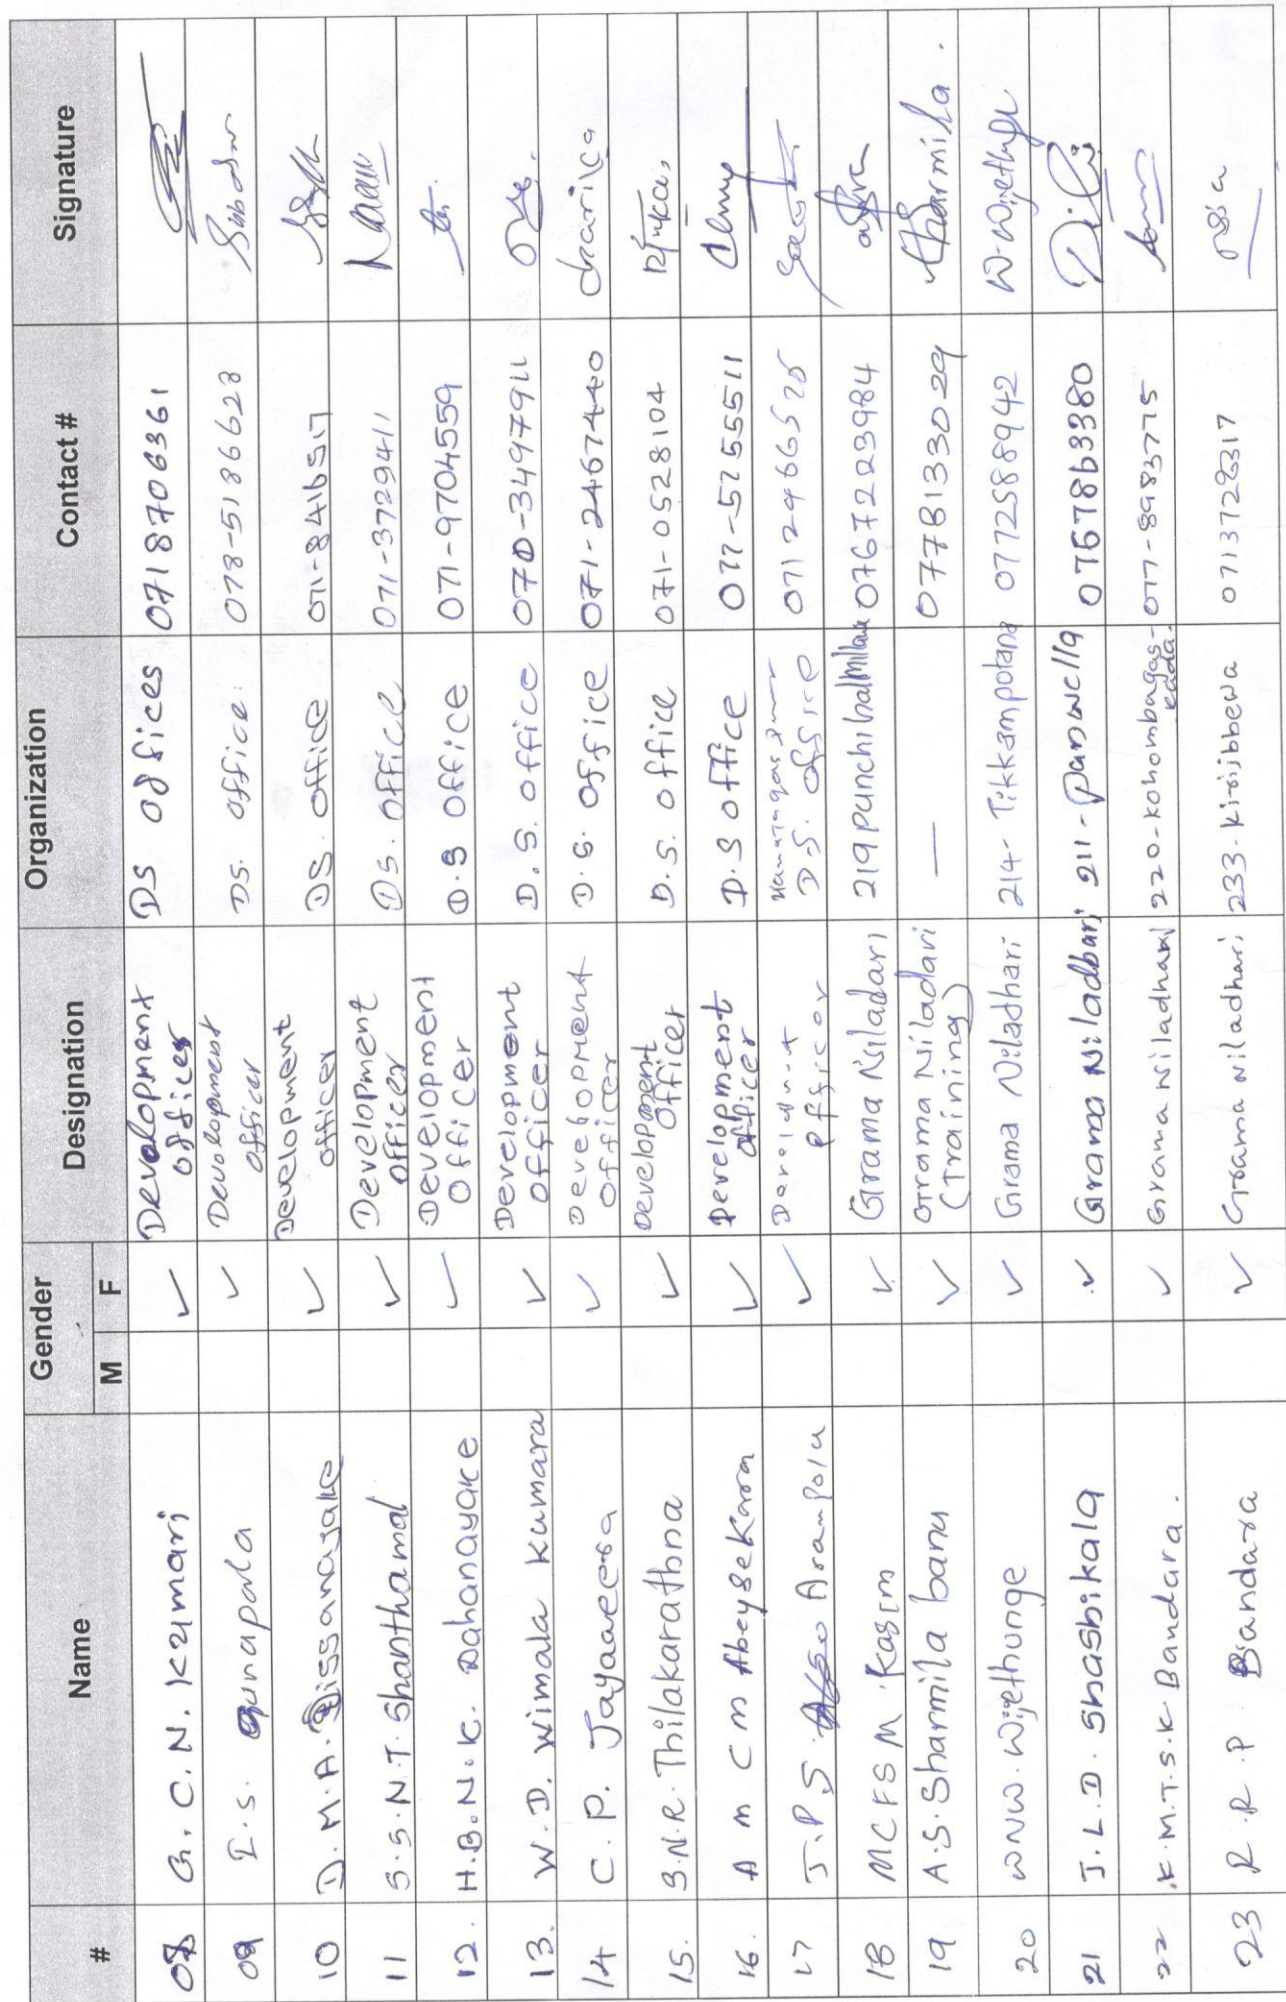 # Name Gender Designation Organization Contact # Signature
M F
08 G. C. N. Kumari ✓ Development officer DS offices 0718706361
09 I. S. Gunapala ✓ Development officer DS. office: 078-5186628
10 D. M. A. Dissanayake ✓ Development officer DS. office 071-8416517
11 S. S. N. T. Shanthamal ✓ Development officer DS. office 071-3729411
12. H. B. N. K. Dahanayake ✓ Development officer D.S office 071-9704559
13. W. D. Wimala Kumara ✓ Development officer D.S. office 070-3497911
14 C. P. ✓ Development officer D.S. office 071-2467440
15. S. N. R. Thilakarathna ✓ Development officer D.S. office 071-0528104
16. A M C M Abeysekara ✓ Development officer D.S office 077-5755511
17 J. P. S. ✓ officer D.S. office
18 M C F S M Kasim ✓ Grama Niladari 219 0767223984
19 A. S. Sharmila banu ✓ Grama Niladari (Training) — 0778133029 Sharmila.
20 W N W. Wijethunge ✓ Grama Niladhari 214- Tikkampotana 0772588942
21 J. L. D. Shashikala ✓ Grama Niladhari 211- Panwella 0767863380
22 K. M. T. S. K Bandara. ✓ Grama Niladhari 220- 077-8983775
23 R. R. P Bandara ✓ Grama Niladhari 233- Kirijibbewa 0713728317